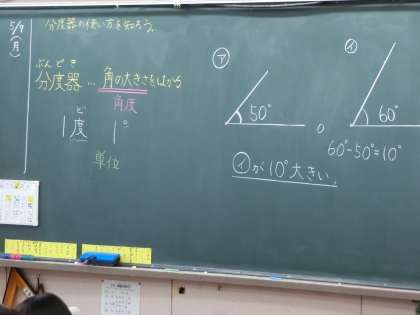 5/9
(月)
分度器の使い方を知ろう。
ぶんどき
分度器…角の大きさをはかる
角度
ど
1度 1°
単位
ア
50°
イ
60°
60°-50°=10°
イが10°大きい。